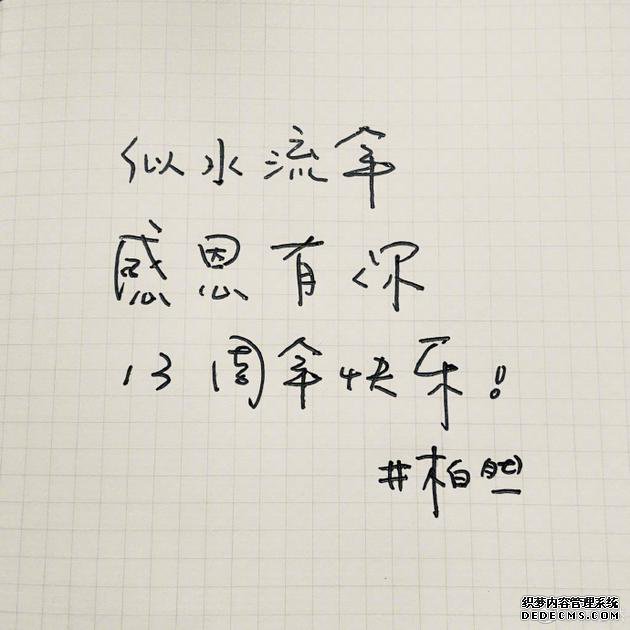 似水流年
感恩有你
13周年快乐!
#柏然
织梦内容管理系统
DEDECMS.COM